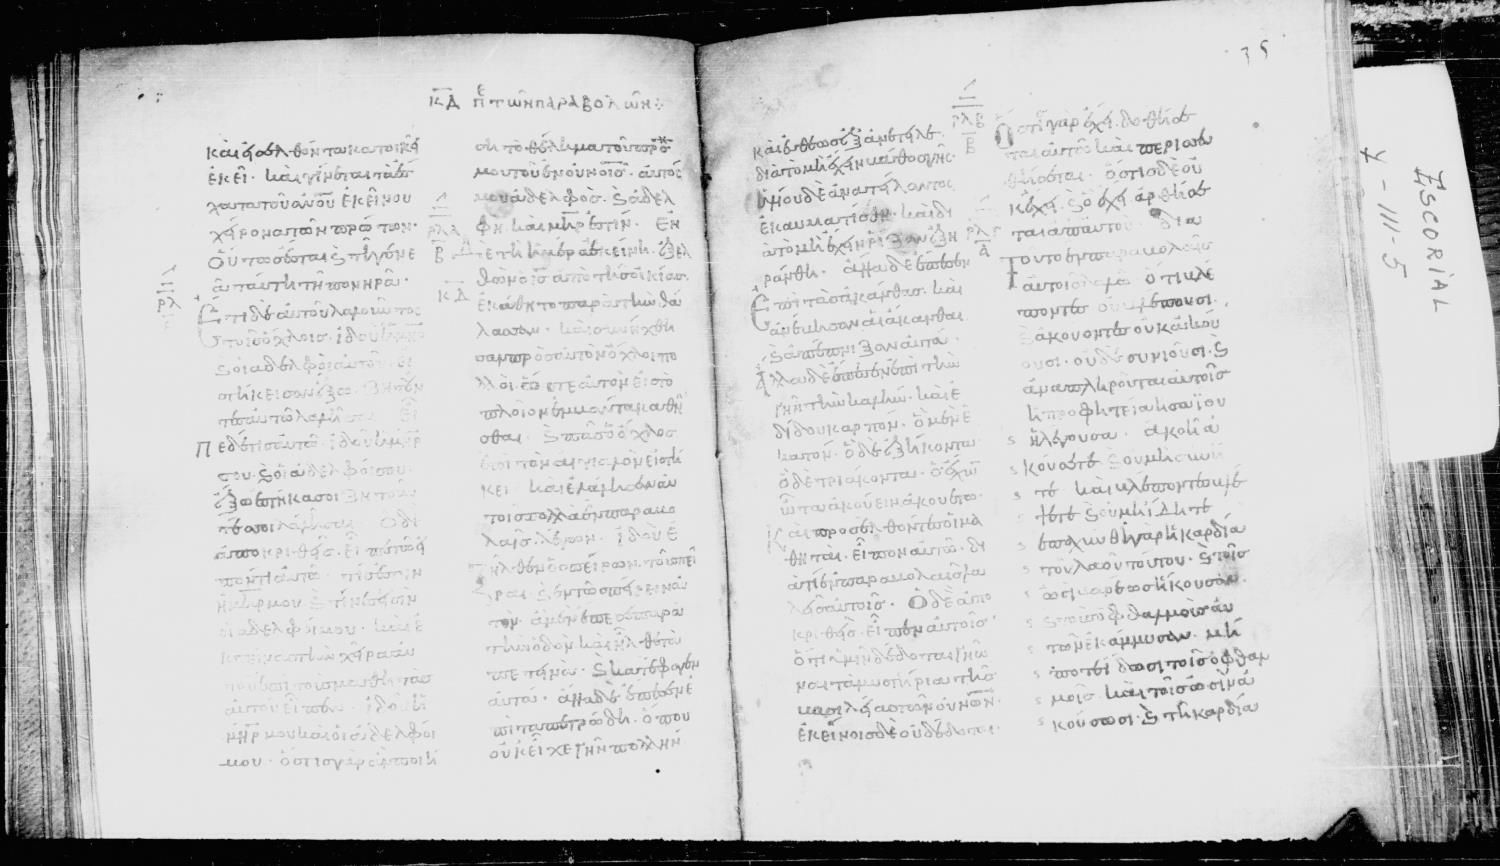 ΚΔ Π̅ ΤῶΝ ΠΑΡΑΒΟΛῶΝ
και εισελθόντα κατοικεῖ
ἐκεῖ· και γίνεται τὰ ἔσ
χατα τοῦ ἀν̅ου̅ ἐκείνου
χείρονα τῶν πρώτων·
Οὕτως ἔσται ϗ τῆ γενε
ᾶ ταύτη τῆ πονηρᾶ·
Ετι δε αὐτοῦ λαλοῦντος
τοῖς ὄχλοις· ἰδοὺ ἡ μη̅ρ̅
ϗ οἱ ἀδελφοὶ αὐτοῦ· εἱ
στήκεισαν ἔξω· ζητοῦν
τες αὐτῶ λαλῆσαι· Εἶ
Πε δέ τις αὐτῶ· ἰδοὺ ἡ μη̅ρ̅
σου· ϗ οἱ ἀδελφοί σου·
ἔξω ἑστήκασοι ζητοῦν
τες σοι λαλῆσαι· Ὁ δὲ
ἀποκριθεὶς· εἶπε τῶ εἰ
πόντι αὐτῶ· τίς ἐστιν
ἡ μη̅ρ̅ μου ϗ τίνες εἰσὶν
οἱ ἀδελφοί μου· και ἐ
κτείνας τὴν χεῖρα αὐ
τοῦ ἐπὶ τοὺς μαθητὰς
αὐτοῦ εἶπεν· ἰδοὺ ἡ
μη̅ρ̅ μου και οἱ ἀδελφοί
μου· ὅστις γὰρ ἂν ποιῆ
ση τὸ θέλημα τοῦ π̅ρ̅σ̅
μου τοῦ ἐν οὐ̅νοι̅ς· αὐτός
μου ἀδελφὸσ· ϗ ἀδελ
φὴ· και μη̅ρ̅ ἐστίν· Ἐν
Δὲ τῆ ἡμέρα ἐκείνη· ἐξελ
θὼν ὁ ι̅ς̅ ἀπὸ τῆς οἰκίας·
ἐκάθητο παρὰ τὴν θά
λασσαν· και συνήχθη
σαν πρὸς αὐτὸν ὄχλοι πο
λλοί· ὥστε αὐτὸν εἰς τὸ
πλοῖον ἐμβάντα καθῆ
σθαι· ϗ πᾶς ὁ ὄχλος
ἐπὶ τὸν αἰγιαλὸν εἱστή
κει· και ἐλάλησεν αὐ
τοῖς πολλὰ ἐν παραβο
λαῖς λέγων· Ἰδοὺ ἐ
ξῆλθεν ὁ σπείρων· τοῦ σπεί
ραι· ϗ ἐν τῶ σπείρειν αὐ
τὸν· ἃ μὲν ἔπεσε παρὰ
τὴν ὁδὸν και ἦλθε τὰ
πετεινὰ· ϗ κατέφαγεν
αὐτά· ἄλλα δὲ ἔπεσεν ἐ
πὶ τὰ πετρώδη· ὅπου
οὐκ εἶχε γῆν πολλήν
35
και εὐθέως ἐξανέτειλε·
διὰ τὸ μὴ ἔχειν βάθος γῆς·
ἡλίου δὲ ἀνατείλαντος
ἐκαυματίσθη· και δι
ὰ τὸ μὴ ἔχειν ῥίζαν ἐξη
ράνθη· ἄλλα δὲ ἔπεσεν
Ἐπὶ τὰς ἀκάνθας· και
ἀνέβησαν αἱ ἄκανθαι
ϗ ἀπέπνιξαν αὐτά·
Ἄλλα δὲ ἔπεσεν ἐπὶ τὴν
γῆν τὴν καλήν· και ἐ
δίδου καρπόν· ὃ μὲν ἑ
κατόν· ὃ δὲ ἑξήκοντα·
ὃ δὲ τριάκοντα· ὁ ἔχων
ὦτα ἀκούειν ἀκουέτω·
Και προσελθόντες οἱ μα
θηταὶ· εἶπον αὐτῶ· δι
ὰ τί ἐν παραβολαῖς λα
λεῖς αὐτοῖς· Ὁ δὲ ἀπο
κριθεὶς· εἶπεν αὐτοῖς·
ὅτι ὑμῖν δέδοται γνῶ
ναι τὰ μυστήρια τῆς
βασιλείας τῶν οὐ̅νω̅ν·
ἐκείνοις δὲ οὐ δέδοται·
Ὅστις γὰρ ἔχει· δοθήσε
ται αὐτῶ και περισσευ
θήσεται· ὅστις δὲ οὐ
κ ἔχει· ϗ ὃ ἔχει ἀρθήσε
ται ἀπ αὐτοῦ· δια
Τοῦτο ἐν παραβολαῖς
αὐτοῖς λαλῶ· ὅτι βλέ
ποντες οὐ βλέπουσι·
ϗ ἀκούοντες οὐκ ἀκού
ουσι· οὐδὲ συνιοῦσι· ϗ
ἀναπληροῦται αὐτοῖς
ἡ προφητεία ἡσαΐου
ἡ λέγουσα· ἀκοῆ ἀ
κούσετε ϗ οὐ μὴ συνῆ
τε· και βλέποντες βλέ
ψετε ϗ οὐ μὴ ἴδητε·
ἐπαχύνθη γὰρ ἡ καρδία
τοῦ λαοῦ τούτου· ϗ τοῖς
ὠσὶ βαρέως ἤκουσαν·
ϗ τοὺς ὀφθαλμοὺς αὐ
τῶν ἐκάμμυσαν· μή
ποτε ἴδωσι τοῖς ὀφθαλ
μοῖς· και τοῖς ὠσὶν ἀ
κούσωσι· ϗ τῆ καρδία
ESCORIAL
Ψ-III-5